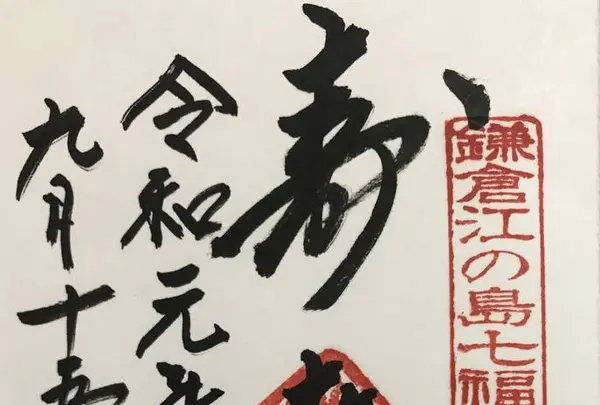 鎌倉江の島七福
寿
令和元年
九月十五